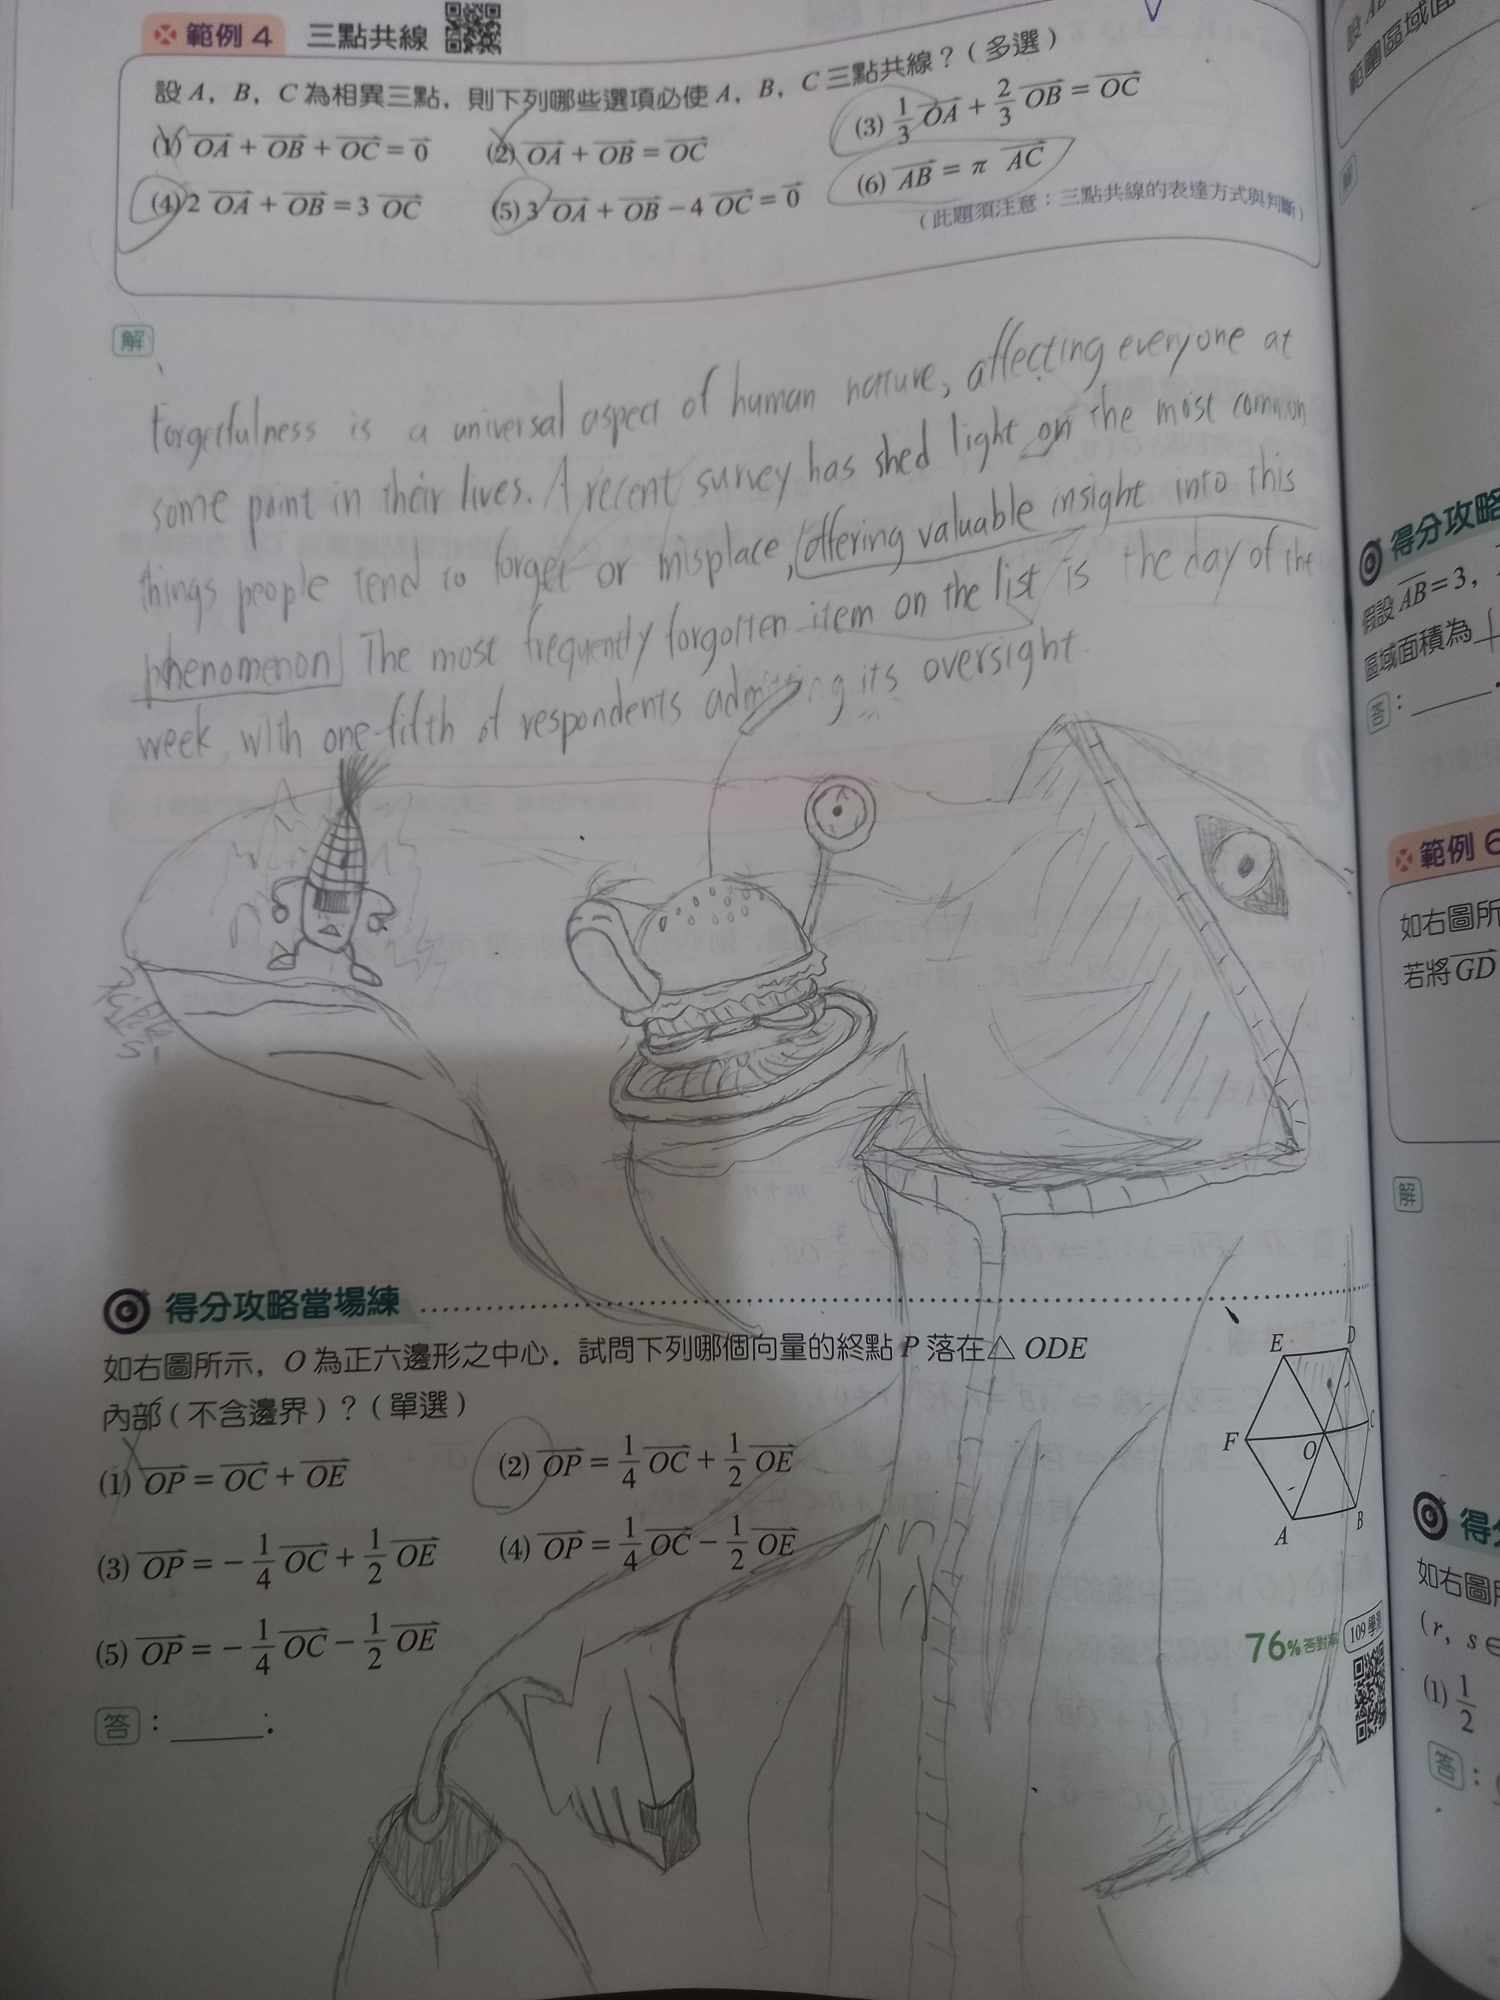 範例 4 三點共線
設 A, B, C 為相異三點, 則下列哪些選項必使 A, B, C 三點共線？(多選)
(1) OA + OB + OC = 0 (2) OA + OB = OC (3) 1/3 OA + 2/3 OB = OC
(4) 2 OA + OB = 3 OC (5) 3 OA + OB − 4 OC = 0 (6) AB = π AC
(此題須注意：三點共線的表達方式與判斷)
解
Forgetfulness is a universal aspect of human nature, affecting everyone at
some point in their lives. A recent survey has shed light on the most common
things people tend to forget or misplace, offering valuable insight into this
phenomenon. The most frequently forgotten item on the list is the day of the
week, with one-fifth of respondents admitting its oversight.
得分攻略當場練
如右圖所示, O 為正六邊形之中心, 試問下列哪個向量的終點 P 落在△ ODE
內部(不含邊界)？(單選)
(1) OP = OC + OE (2) OP = 1/4 OC + 1/2 OE
(3) OP = − 1/4 OC + 1/2 OE (4) OP = 1/4 OC − 1/2 OE
(5) OP = − 1/4 OC − 1/2 OE
答：
E D
F O C
A B
76% 答對率
109 學測
範圍區域面
得分攻略
假設 AB = 3,
區域面積為
答：
範例 6
如右圖所
若將 GD
解
得分
如右圖所
(r, s ∈
(1) 1/2
答：